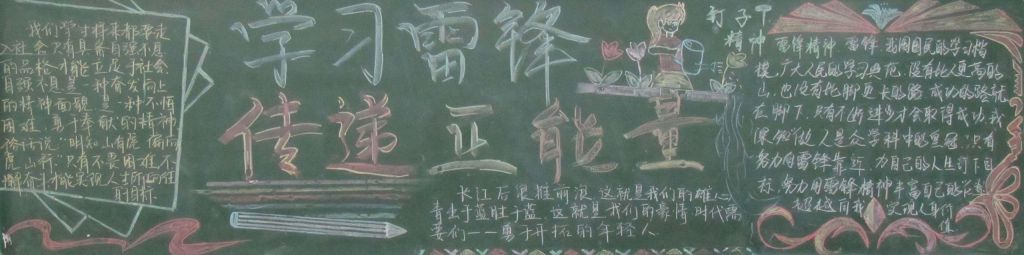 学习雷锋
传递正能量
我们学习将来都要走
入社会,只有具备自强不息
的品格,才能立足于社会,
自强不息是一种奋发向上
的精神面貌,是一种不怕
困难,勇于奉献的精神
俗话说"明知山有虎,偏向
虎山行"只有不畏困难,不
懈奋斗才能实现人生所正在
取目标
长江后浪推前浪,这就是我们的雄心
青出于蓝胜于蓝,这就是我们的豪情,时代需
要们——勇于开拓的年轻人
钉子
精神
雷锋精神 雷锋,我国国民的学习楷
模,广大人民的学习典范,没有比人更高的
山,也没有比脚更长的路,成功的路就
在脚下,只有不断进步才会取得成功,我
们做人是众学科中的
努力向雷锋靠近,为自己的人生订下目
标,努力用雷锋精神丰富自己的
超越自我,实现人身价
值